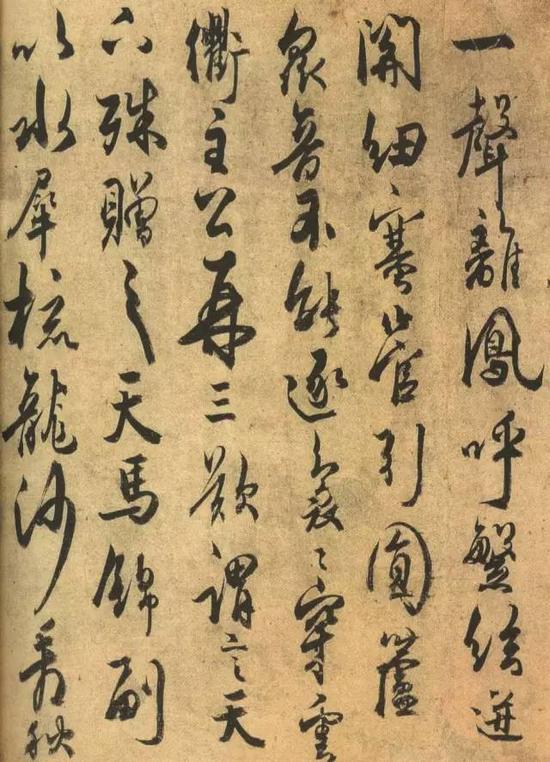 一聲雛鳳呼繁絃迸
關紐塞管引圓蘆
眾音不能逐裊〻穿雲
衢主公再三歎謂言天
下殊贈之天馬錦副
以水犀梳龍沙看秋